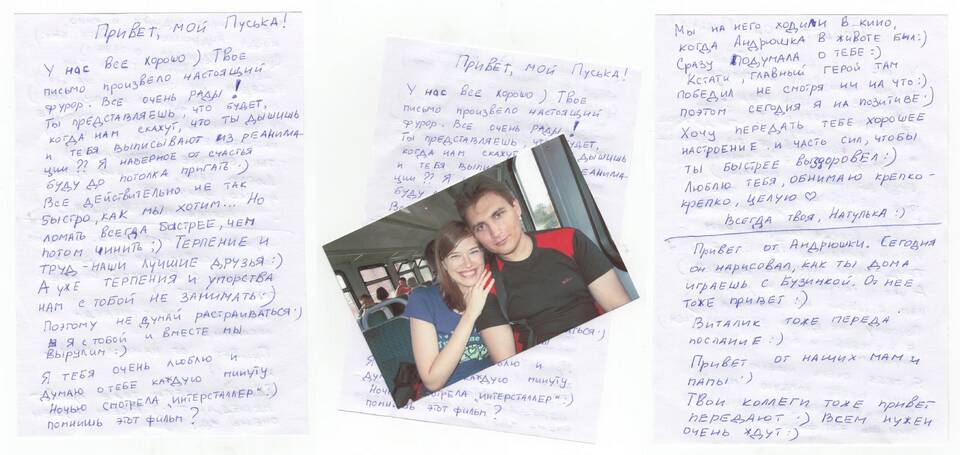 Привет, мой Пуська!
У нас все хорошо) Твое
письмо произвело настоящий
фурор. Все очень рады!
Ты представляешь, что будет,
когда нам скажут, что ты дышишь
и тебя выписывают из реанима-
ции?? Я наверное от счастья
буду до потолка прыгать:)
Все действительно не так
быстро, как мы хотим... Но
ломать всегда быстрее, чем
потом чинить:) Терпение и
труд - наши лучшие друзья:)
А уже терпения и упорства
нам с тобой не занимать:)
Поэтому не думай расстраиваться:)
Я с тобой и вместе мы
вырулим:)
Я тебя очень люблю и
думаю о тебе каждую минуту.
Ночью смотрела "Интерсталлер":)
помнишь этот фильм?
Привет, мой Пуська!
У нас все хорошо) Твое
письмо произвело настоящий
фурор. Все очень рады!
Ты представляешь, что будет,
когда нам скажут, что ты дышишь
и тебя выпис реанима-
ции?? Я на
буду д
Вс
люблю и
Дума каждую минуту.
Ночью смотрела "Интерсталлер":)
помнишь этот фильм?
Мы на него ходили в кино,
когда Андрюшка в животе был:)
Сразу подумала о тебе:)
Кстати, главный герой там
победил не смотря ни на что:)
поэтом сегодня я на позитиве:)
Хочу передать тебе хорошее
настроение и часть сил, чтобы
ты быстрее выздоровел:)
Люблю тебя, обнимаю крепко-
крепко, целую ♡
Всегда твоя, Натулька:)
Привет от Андрюшки. Сегодня
он нарисовал, как ты дома
играешь с Бузинкой. От нее
тоже привет:)
Виталик тоже переда
послание:)
Привет от наших мам и
папы:)
Твои коллеги тоже привет
передают:) Всем нужен
очень ждут:)